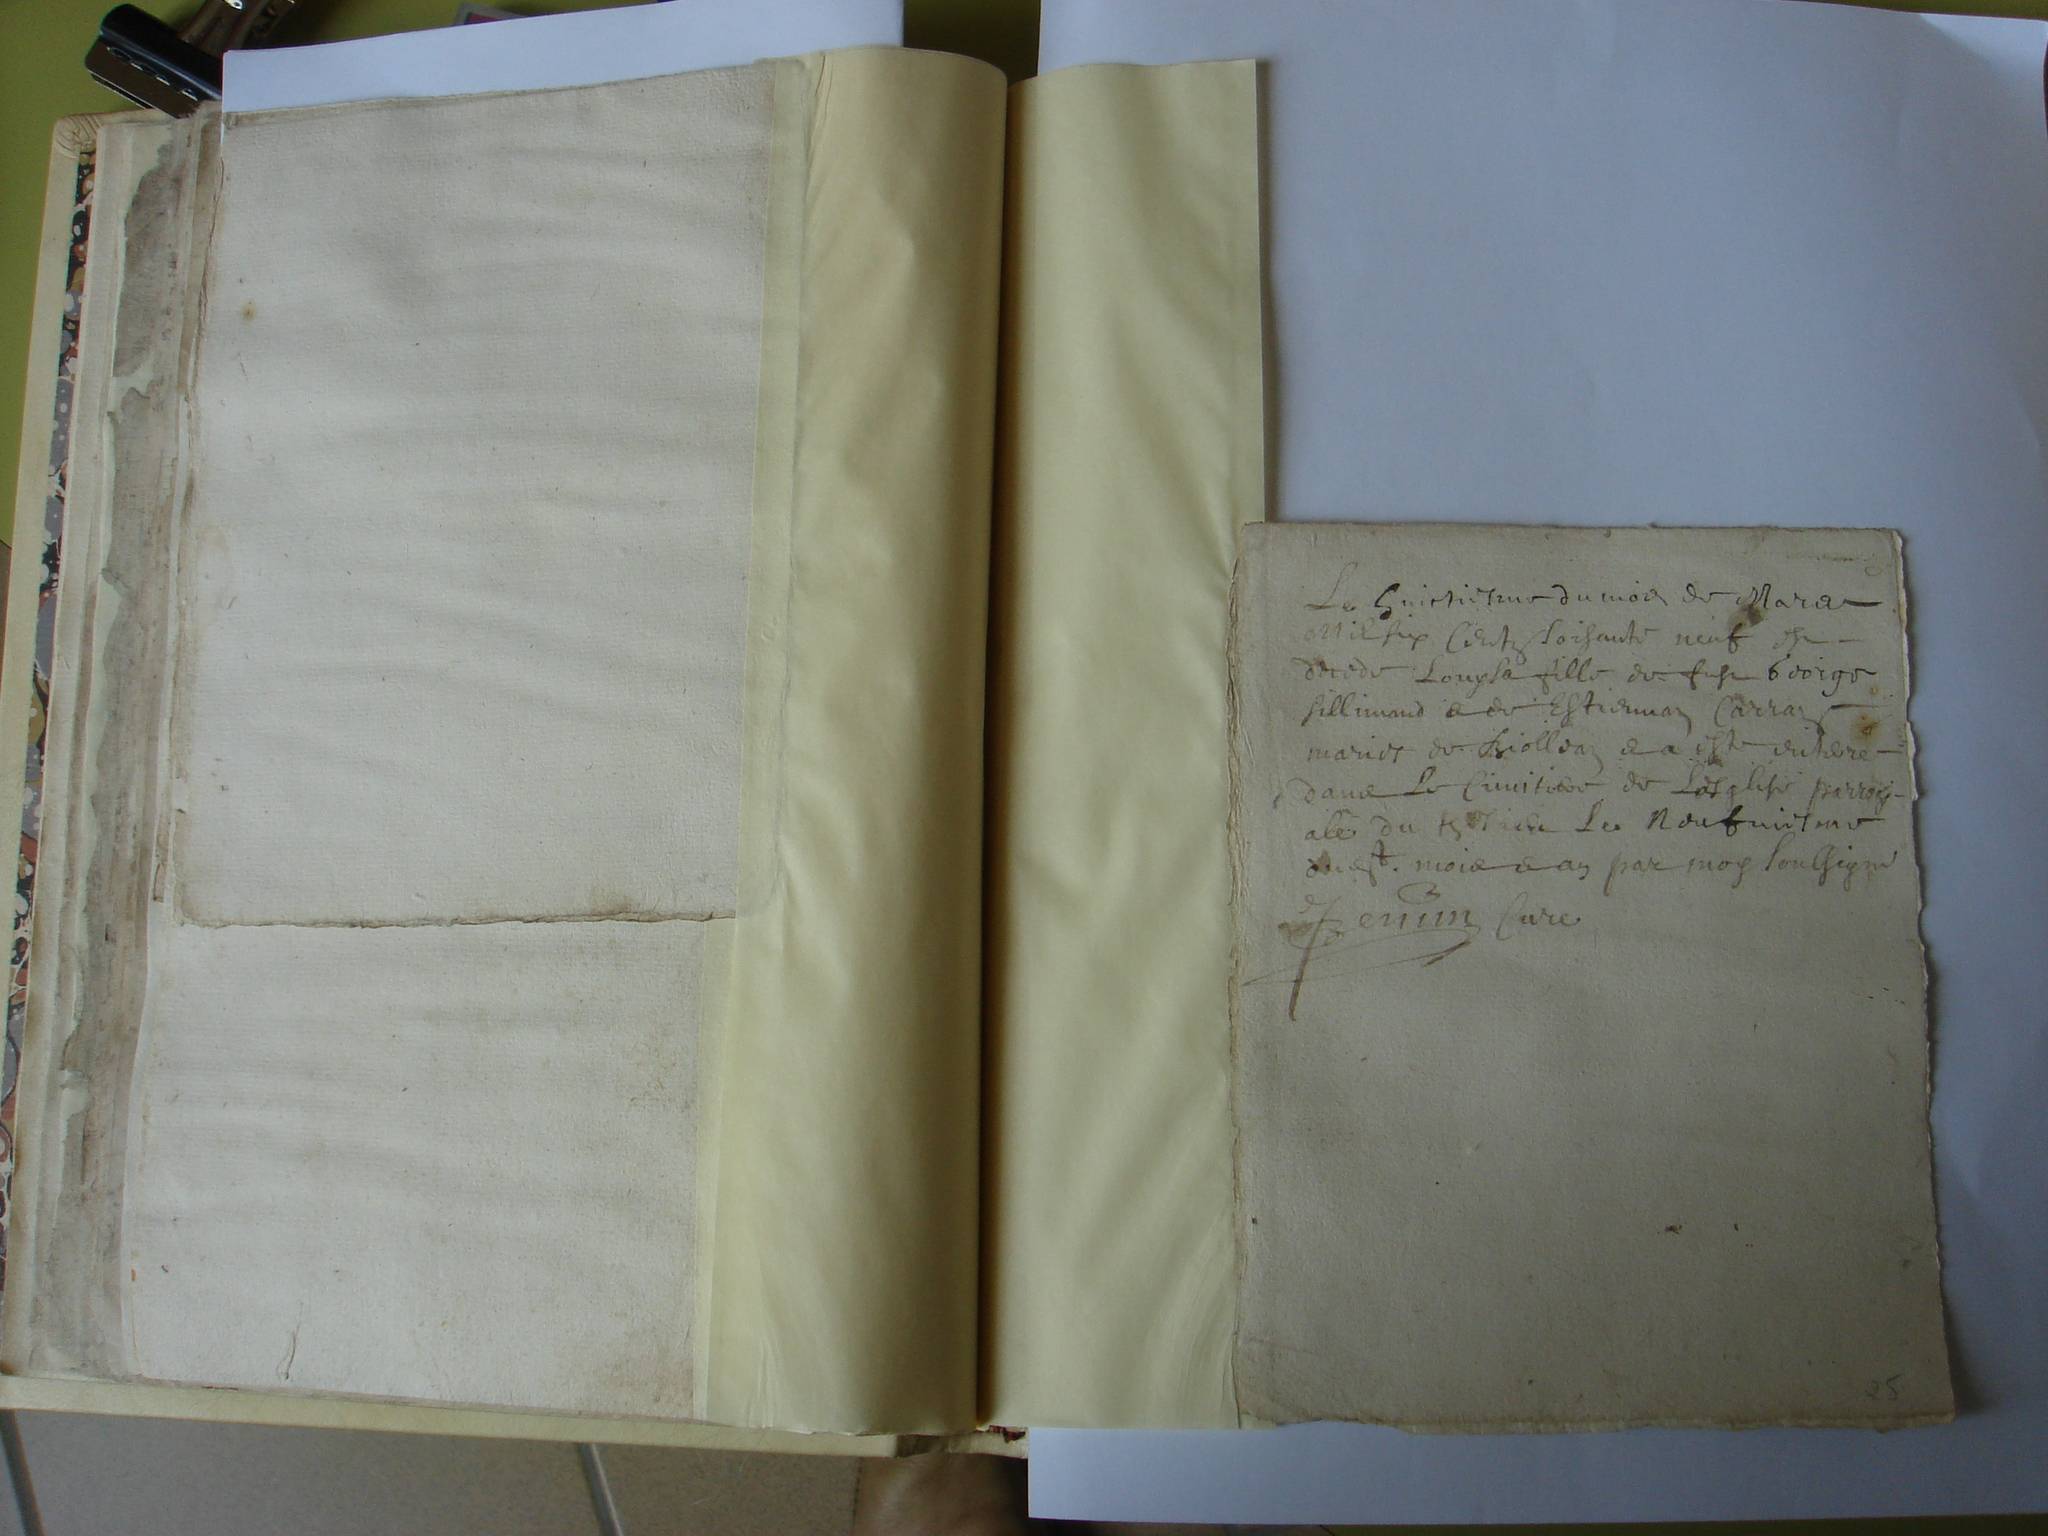 Le huictiesme du mois de Mars
Mil six Centz soisante neuf est
decede Louysa fille de feu George
Sillimand & de Estienna Carraz
maries de & a este enterre
dans Le Cimitiere de Lesglise parrochi-
ale du Le Neufuiesme
mois & an par moy soubsigne
Cure
25